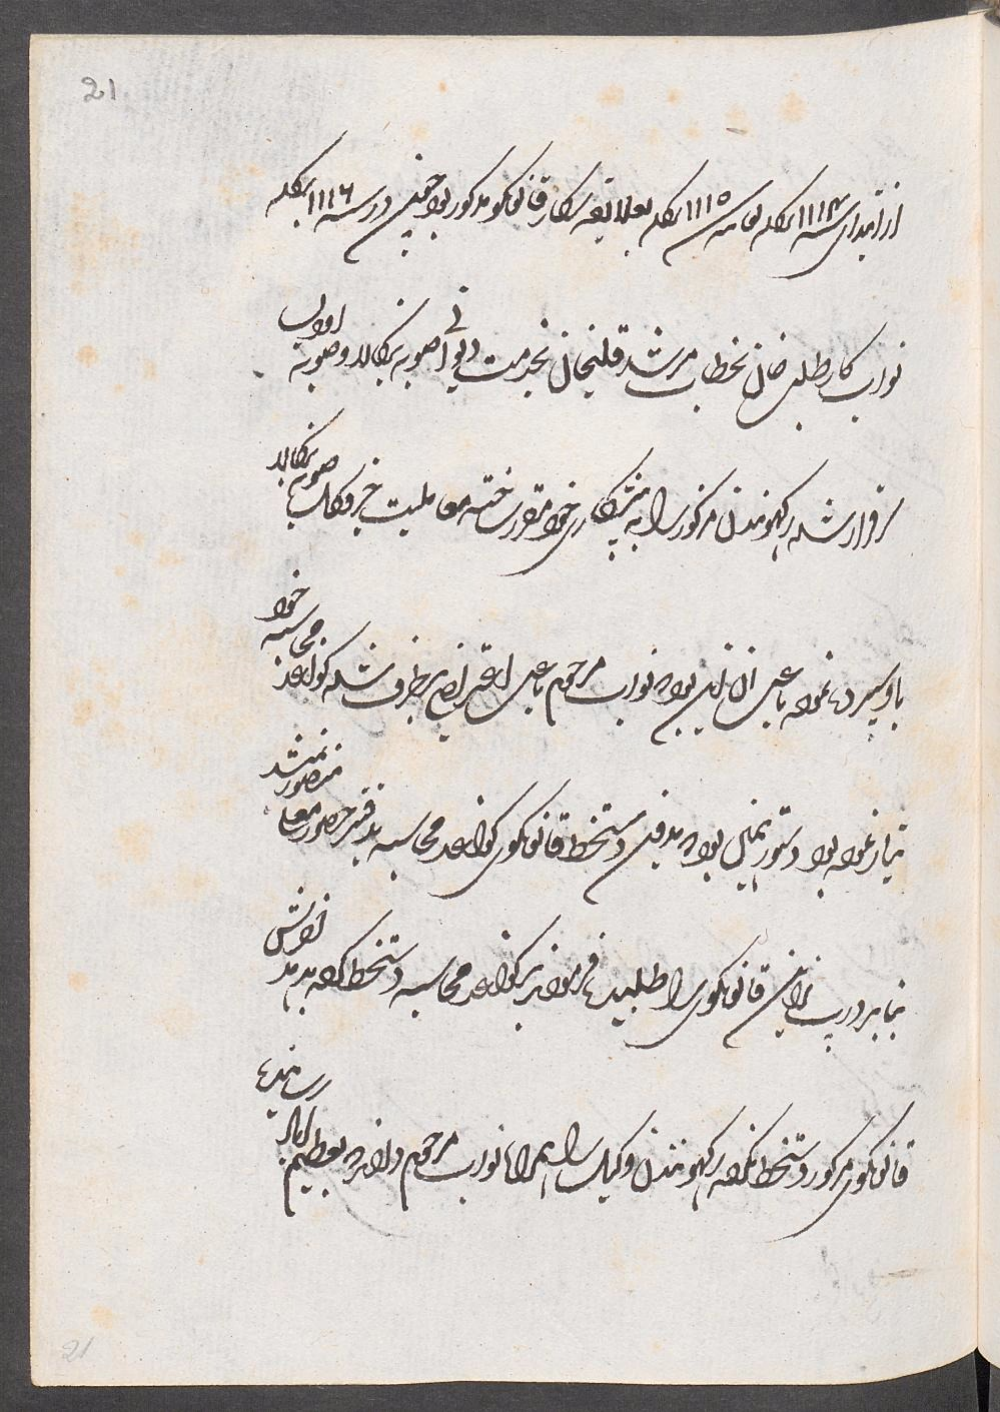 21
از ابتدای سنه ۱۱۱۴ بنگله لغایت سنه ۱۱۱۵ بنگله بعلاقه سرکار قانونگو مذکور بود چنین در سنه ۱۱۱۶ بنگله
نواب کارطلب خان بخطاب مرشد قلیخان بخدمت دیوانی صوبه بنگاله و صوبه اودیسه
سرفراز شده رگهونندن مذکور را به پیشکاری خود مقرر ساخته معاملت جز و کل صوبه بنگاله
باو سپرده نموده باعث آن این بود که نواب مرحوم باعث اعتراض برطرف شده کواغذ محاسبه خود
تیار نموده بود دستور همین بود که بدون دستخط قانونگوی کواغذ محاسبه بدفتر حضور معلی منظور نمیشد
بنابر درپ نراین قانونگوی را طلبیده فرمودند بر کواغذ محاسبه دستخط کرده بدهد نوازش
قانونگوی مذکور دستخط نکرده رگهونندن وکیل را همراه نواب مرحوم روانه عظیم رسانیده
21